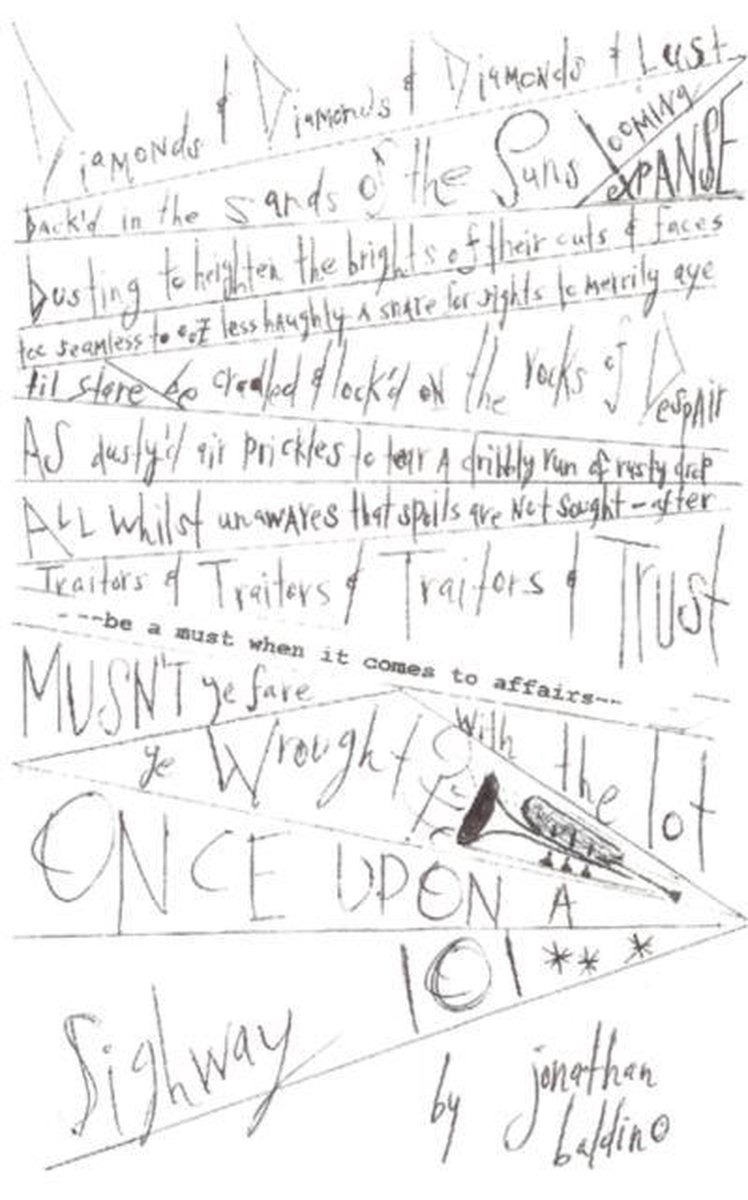 Diamonds & Diamonds & Diamonds & Lust
Looming
EXPANSE
back'd in the sands of the Suns
Dusting to heighten the brights of their cuts & faces
too seamless to eye less haughty A snare for sights to merrily aye
til stare be cradled & lock'd oN the rocks of Despair
AS dusty'd air prickles to tear A dribbly run of rusty drop
ALL Whilst unawares that spoils are Not Sought-after
Traitors & Traitors & Traitors & TRUST
---be a must when it comes to affairs--
MUSN'T ye fare
With the lot
ye Wrought?
ONCE UPON A
Sighway 101 ***
by jonathan
baldino